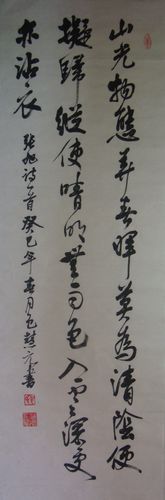 山光物態弄春暉莫為清陰便
擬歸縱使晴明無雨色入雲深處
亦沾衣
張旭詩一首癸巳年春月包慧書